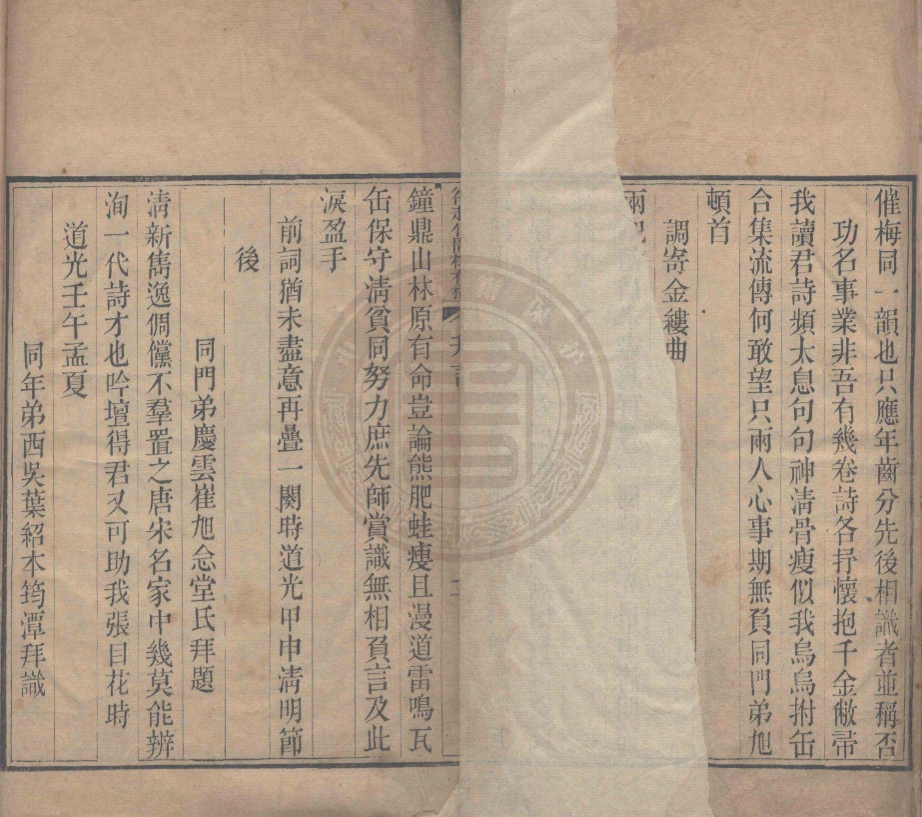 催梅同一韻也只應年齒分先後相識者並稱否
功名事業非吾有幾卷詩各抒懷抱千金敝帚
我讀君詩頻太息句句神清骨瘦似我烏烏拊缶
合集流傳何敢望只兩人心事期無負同門弟旭
頓首
調寄金縷曲
兩
鐘鼎山林原有命豈論熊肥蛙瘦且漫道雷鳴瓦
缶保守清貧同努力庶先師賞識無相負言及此
淚盈手
前詞猶未盡意再疊一闋時道光甲申清明節
後
同門弟慶雲崔旭念堂氏拜題
清新雋逸倜儻不羣置之唐宋名家中幾莫能辨
洵一代詩才也吟壇得君又可助我張目花時
道光壬午孟夏
同年弟西吳葉紹本筠潭拜識